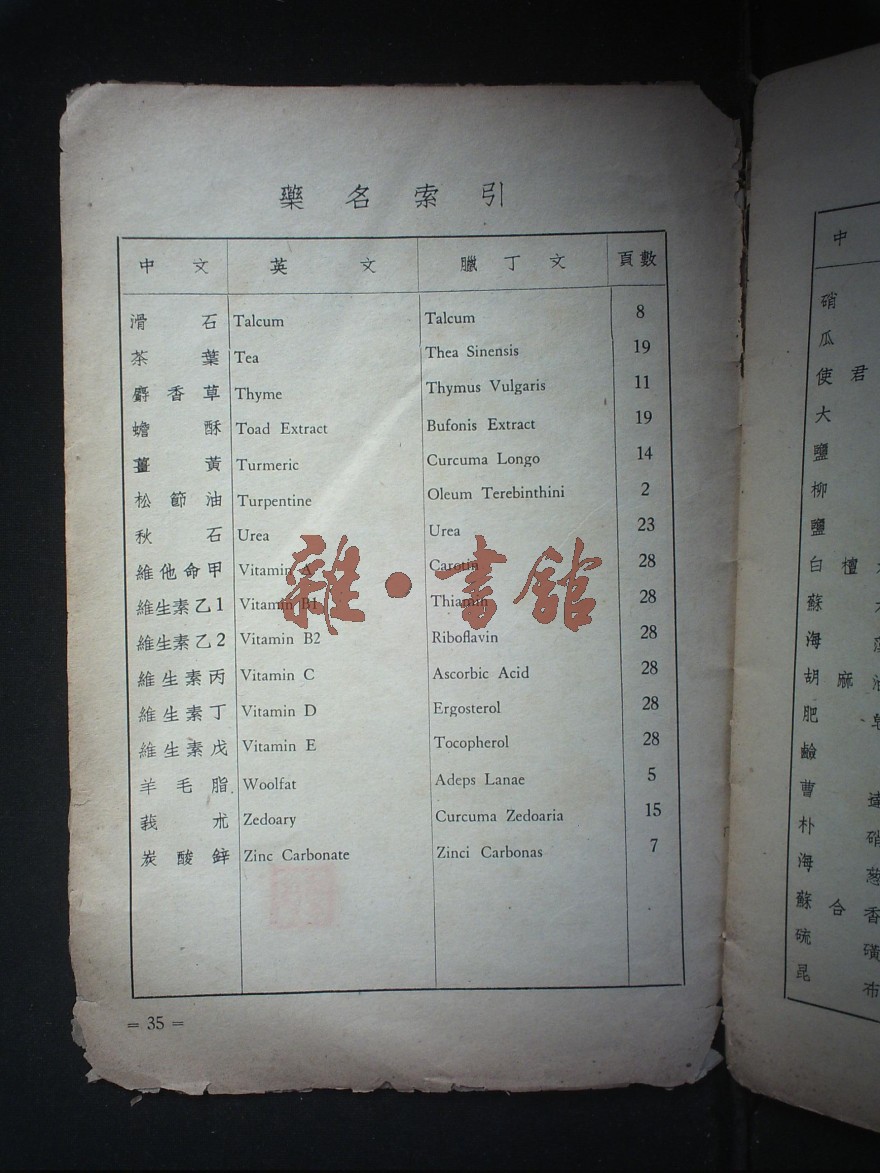 藥名索引
中文 英文 臘丁文 頁數
滑石 Talcum Talcum 8
茶葉 Tea Thea Sinensis 19
麝香草 Thyme Thymus Vulgaris 11
蟾酥 Toad Extract Bufonis Extract 19
薑黃 Turmeric Curcuma Longo 14
松節油 Turpentine Oleum Terebinthini 2
秋石 Urea Urea 23
維他命甲 Vitamin A Carotin 28
維生素乙1 Vitamin B1 Thiamin 28
維生素乙2 Vitamin B2 Riboflavin 28
維生素丙 Vitamin C Ascorbic Acid 28
維生素丁 Vitamin D Ergosterol 28
維生素戊 Vitamin E Tocopherol 28
羊毛脂 Woolfat Adeps Lanae 5
莪朮 Zedoary Curcuma Zedoaria 15
炭酸鋅 Zinc Carbonate Zinci Carbonas 7
= 35 =
雜·書館
中
硝
瓜
使君
大
鹽
柳
鹽
白檀
蘇
海
胡麻油
肥
鹼
曹達
朴硝
海葱
蘇合香
硫磺
昆布